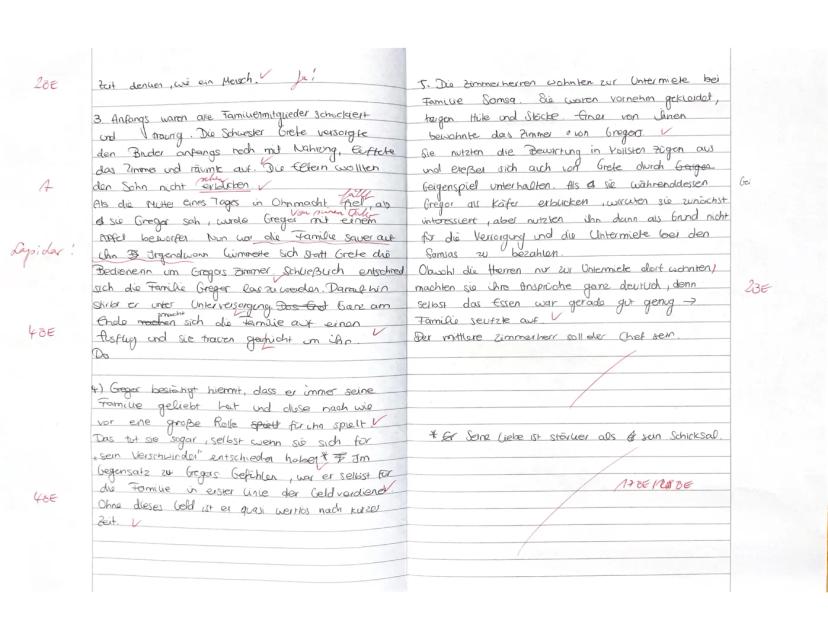 2BE
Zeit denken, wie ein Mensch. Ja!
3. Anfangs waren alle Familienmitglieder schockiert
und traurig. Die Schwester Grete versorgte
den Bruder anfangs noch mit Nahrung, lüftete
das Zimmer und räumte auf. Die Eltern wollten
A
den Sohn nicht erblicken sehen
Als die Mutter eines Tages in Ohnmacht fiel als fällt
sie Gregor sah, wurde Gregor mit einem von seinem Vater
Apfel beworfen. Nun war die Familie sauer auf
Lapidar!
ihn. Irgendwann kümmerte sich statt Grete die
Bedienerin um Gregors Zimmer. Schließlich entschied
sich die Familie Gregor los zu werden. Daraufhin
stirbt er unter Unterversorgung. Ganz am
4BE
Ende machen macht sich die Familie auf einen
Ausflug und sie trauern nicht um ihn.
Do
4.) Gregor bestätigt hiermit, dass er immer seine
Familie geliebt hat und diese nach wie
vor eine große Rolle spielt für ihn spielt
Das tut sie sogar, selbst wenn sie sich für
„sein Verschwinden" entschieden haben* Im
Gegensatz zu Gregors Gefühlen, war er selbst für
4BE
die Familie in erster Linie der Geldverdiener
Ohne dieses Geld ist er quasi wertlos nach kurzer
Zeit.
5. Die Zimmerherren wohnten zur Untermiete bei
Familie Samsa. Sie waren vornehm gekleidet,
trugen Hüte und Stöcke. Einer von ihnen
bewohnte das Zimmer von Gregor.
Sie nutzten die Bewirtung in vollsten Zügen aus
und ließen sich auch von Grete durch Geigen
Geigenspiel unterhalten. Als sie währenddessen
Gregor als Käfer erblicken, wirkten sie zunächst
interessiert, aber nutzten ihn dann als Grund nicht
für die Versorgung und die Untermiete bei den
Samsas zu bezahlen.
Obwohl die Herren nur zur Untermiete dort wohnten,
2BE
machten sie ihre Ansprüche ganz deutlich, denn
selbst das Essen war gerade gut genug →
Familie seufzte auf.
Der mittlere Zimmerherr soll der Chef sein.
* Er Seine Liebe ist stärker als sein Schicksal.